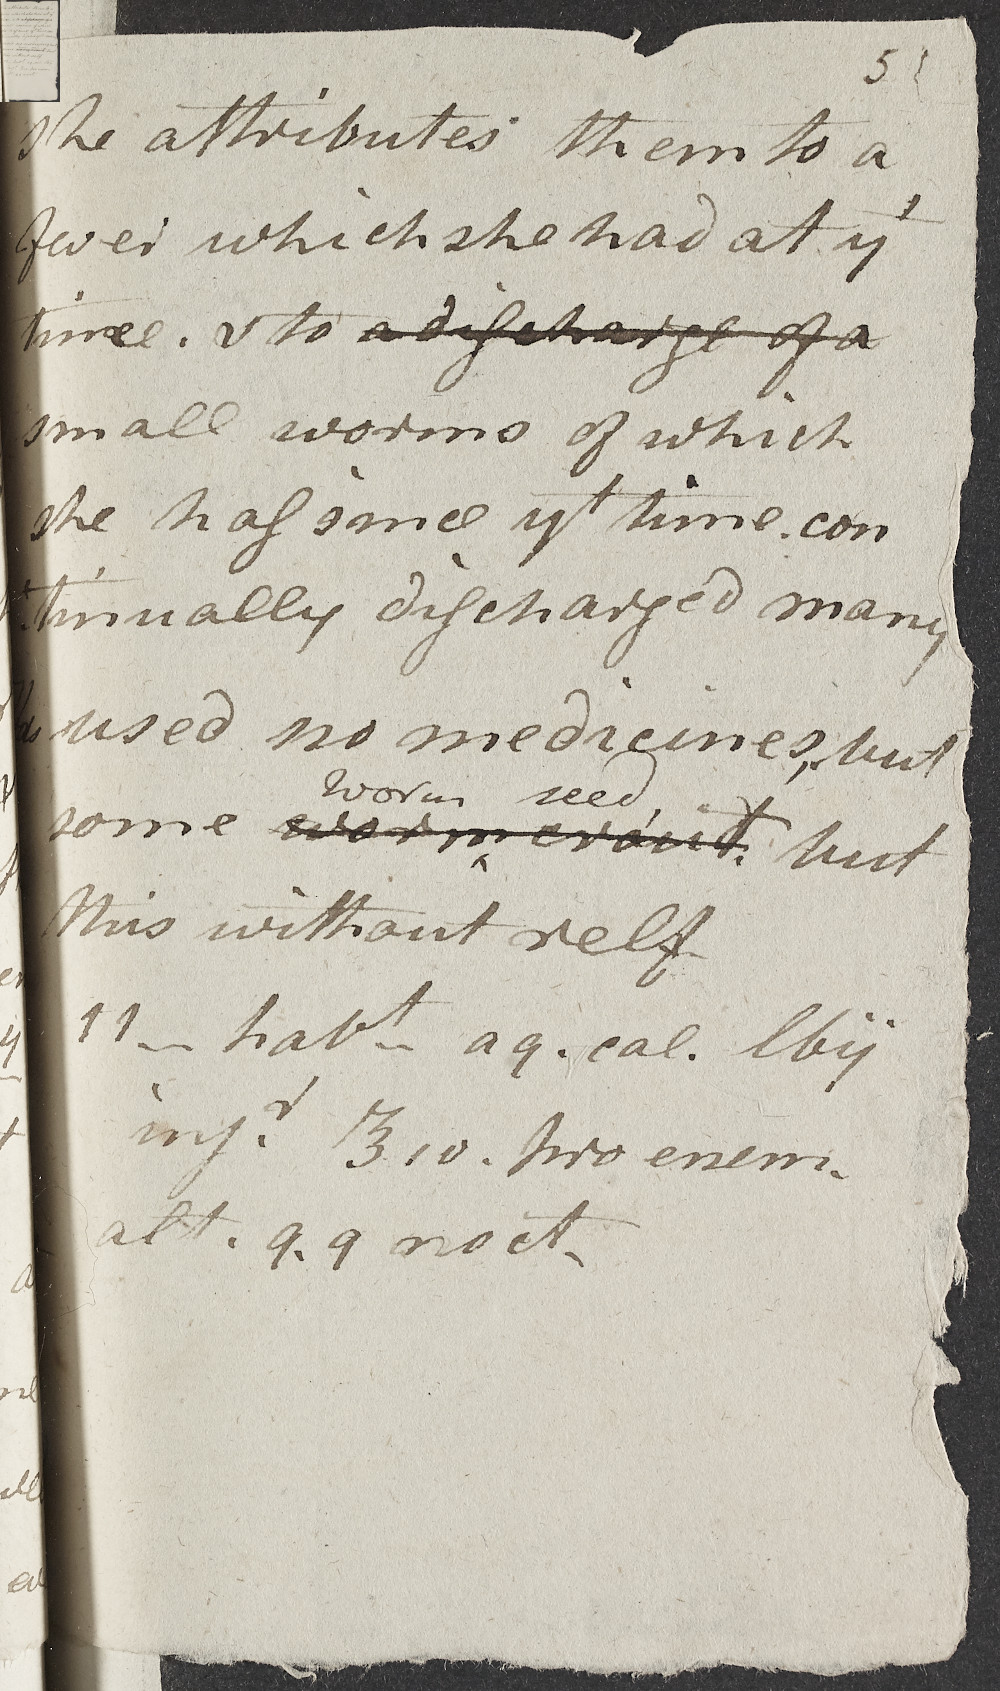 51
she attributes them to a
fever which she had at yt
time. & to a discharge of a
small worms of which
she has since yt time. con
tinually discharged many
has used no medicines, but
worm seed
some but
this without relf
11 — habt — aq. cal. lbij
injr ℥ 10. pro enem.
alt. q. q noct.